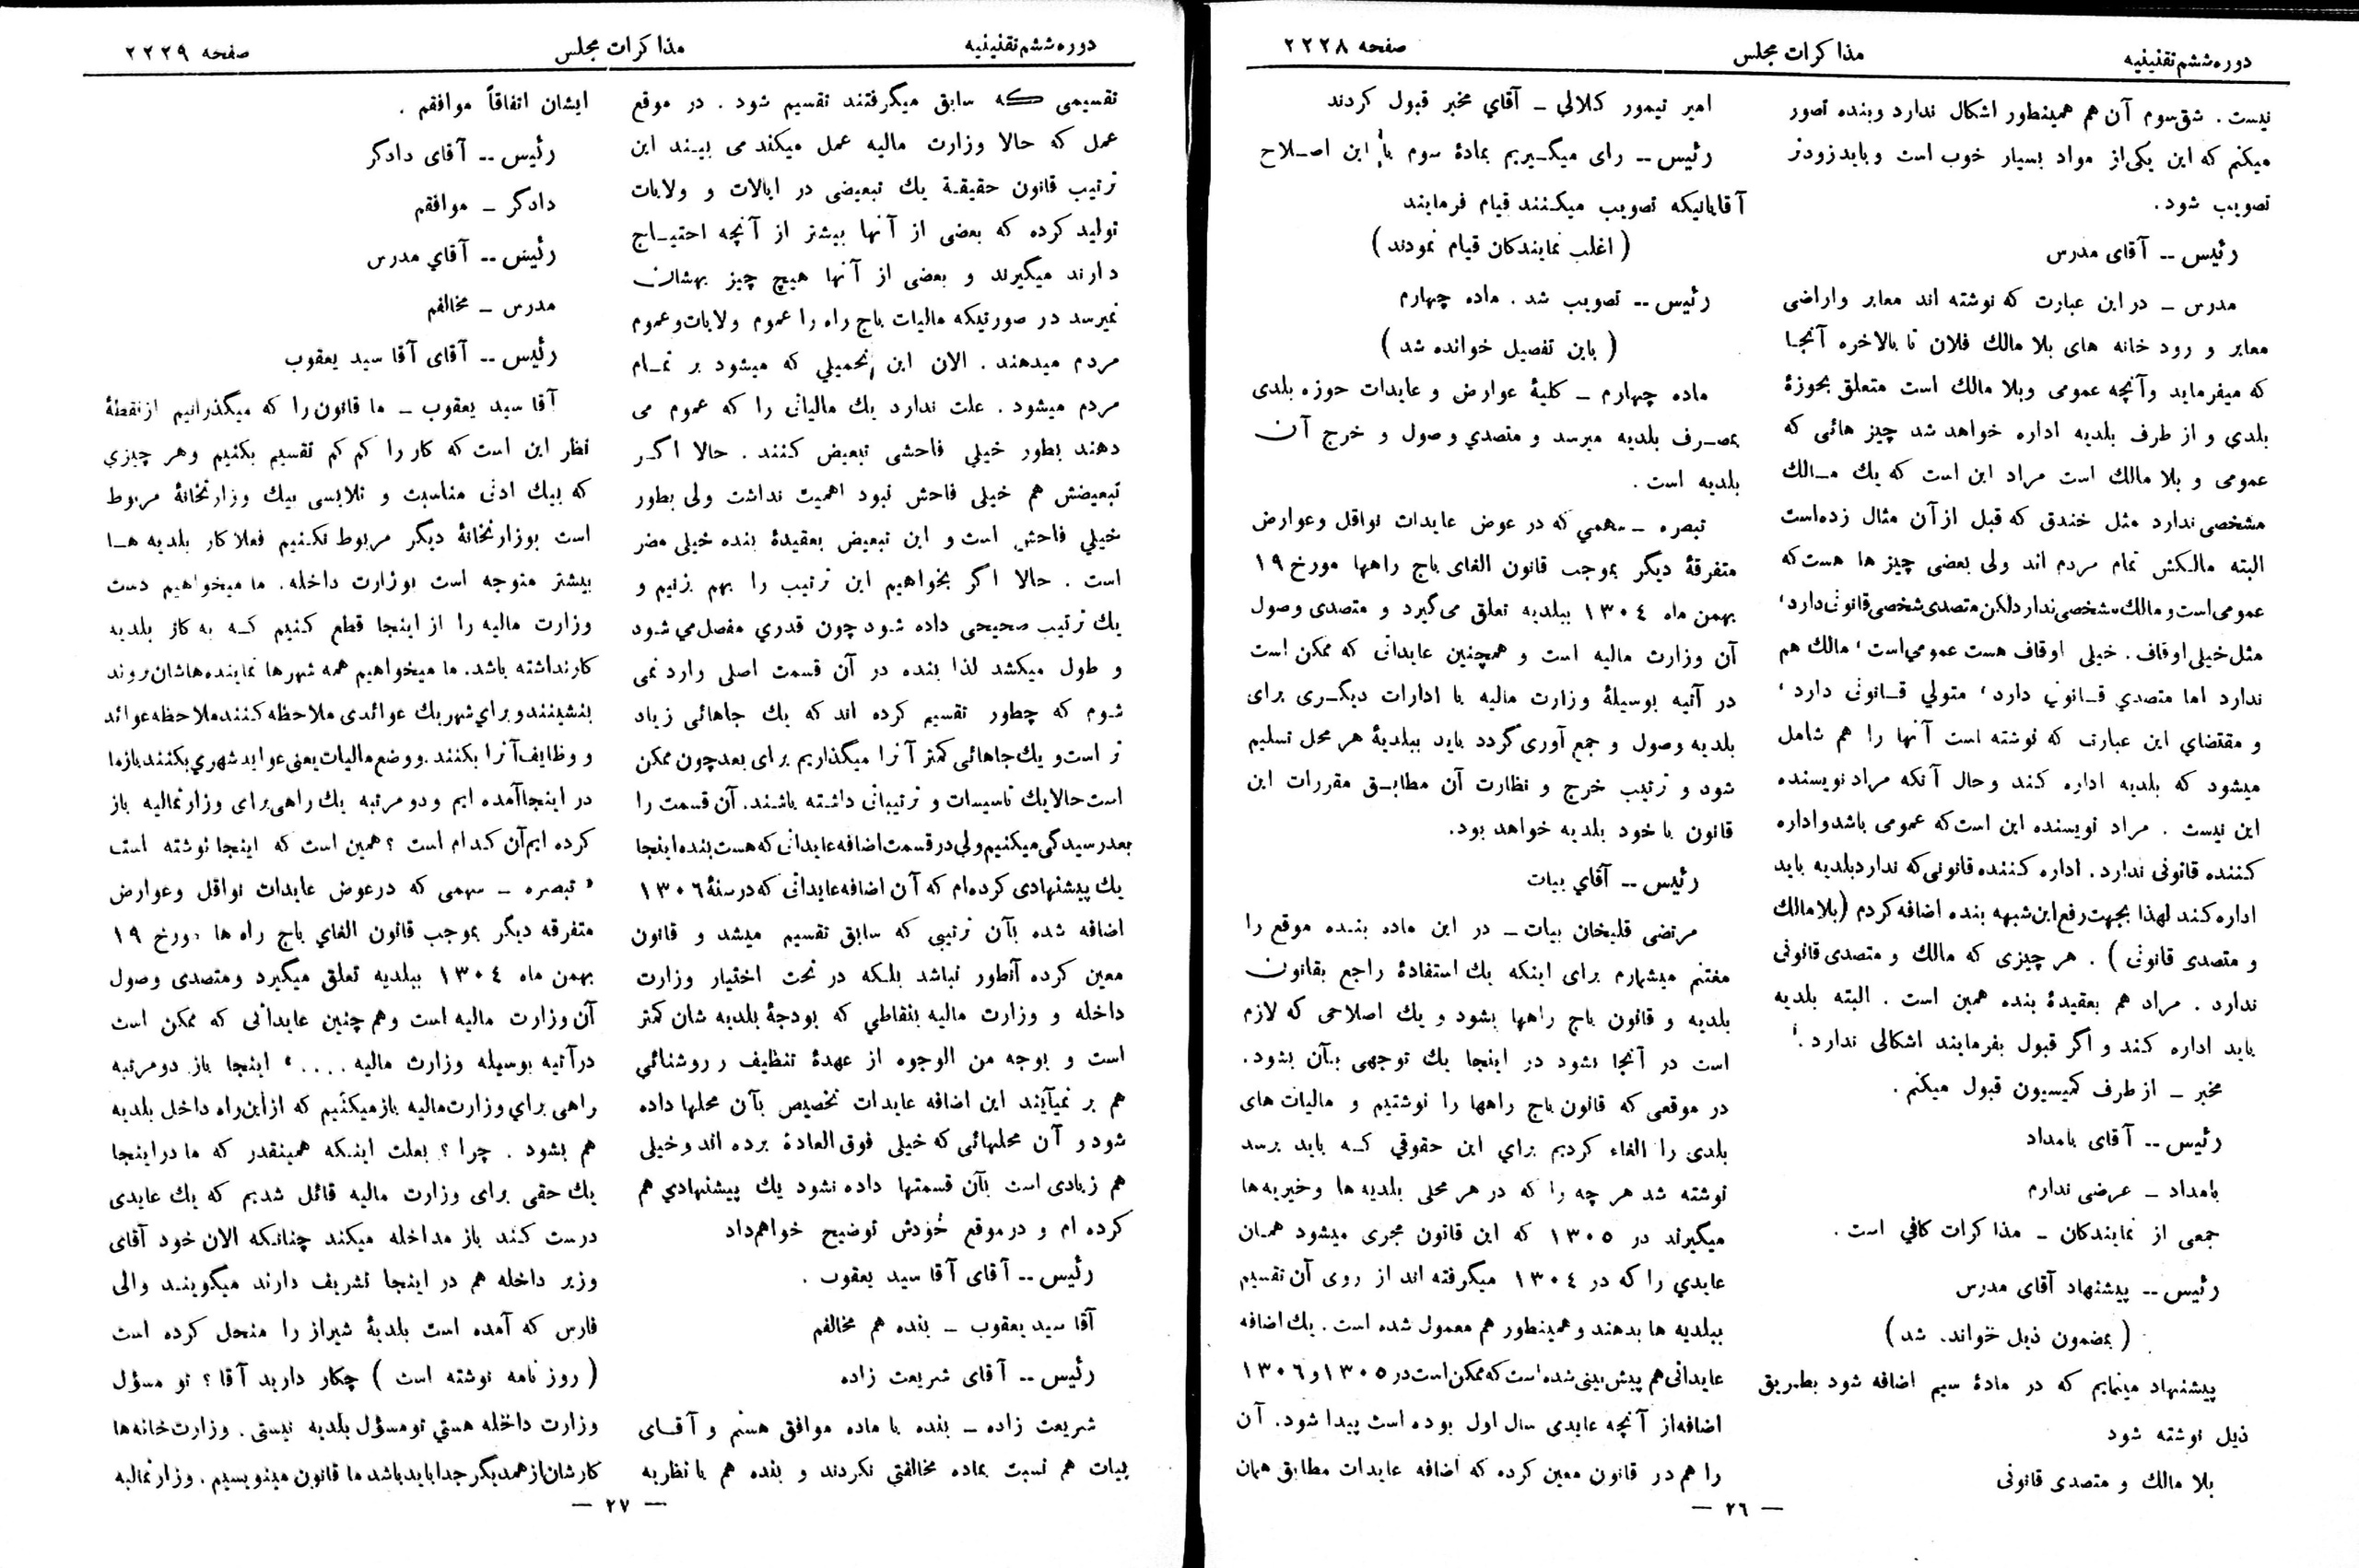 دوره ششم تقنینیه
مذاکرات مجلس
صفحه ۲۲۲۸
نیست . شق سوم آن هم همینطور اشکال ندارد وبنده تصور
میکنم که این یکی از مواد بسیار خوب است وباید زودتر
تصویب شود .
رئیس -- آقای مدرس
مدرس ـ دراین عبارت که نوشته اند معابر واراضی
معابر و رود خانه های بلا مالك فلان تا بالاخره آنجا
که میفرماید وآنچه عمومی وبلا مالك است متعلق بحوزۀ
بلدی و از طرف بلدیه اداره خواهد شد چیز هائی که
عمومی و بلا مالك است مراد این است که یك مـالك
مشخصی ندارد مثل خندق که قبل ازآن مثال زده‌است
البته مالکش تمام مردم اند ولی بعضی چیز ها هست که
عمومی است و مالك مشخصی ندارد لکن متصدی شخصی قانونی دارد ،
مثل خیلی اوقاف . خیلی اوقاف هست عمومی است ، مالك هم
ندارد اما متصدي قـانونی دارد ، متولي قـانونی دارد ،
و مقتضاي این عبارت که نوشته است آنها را هم شامل
میشود که بلدیه اداره کند وحال آنکه مراد نویسنده
این نیست . مراد نویسنده این است که عمومی باشد واداره
کننده قانونی ندارد . اداره کننده قانونی که ندارد بلدیه باید
اداره کند لهذا بجهت رفع این شبهه بنده اضافه کردم (بلا مالك
و متصدی قانونی ) . هر چیزی که مالك و متصدی قانونی
ندارد . مراد هم بعقیدۀ بنده همین است . البته بلدیه
باید اداره کند و اگر قبول بفرمایند اشکالی ندارد .
مخبر ـ از طرف کمیسیون قبول میکنم .
رئیس -- آقای بامداد
بامداد ـ عرضی ندارم
جمعی از نمایندگان ـ مذاکرات کافي است .
رئیس -- پیشنهاد آقای مدرس
( بمضمون ذیل خوانده شد )
پیشنهاد مینمایم که در مادۀ سیم اضافه شود بطریق
ذیل نوشته شود
بلا مالك و متصدی قانونی
امیر تیمور کلالي ـ آقاي مخبر قبول کردند
رئیس -- رای میگـیریم بمادۀ سوم با این اصـلاح
آقایانیکه تصویب میکـنند قیام فرمایند
( اغلب نمایندکان قیام نمودند )
رئیس -- تصویب شد . ماده چهارم
( باین تفصیل خوانده شد )
ماده چهارم ـ کلیۀ عوارض و عایدات حوزه بلدی
بمصـرف بلدیه میرسد و متصدي وصول و خرج آن
بلدیه است .
تبصره ـ سهمي که در عوض عایدات نواقل وعوارض
متفرقۀ دیگر بموجب قانون الغای باج راهها مورخ ۱۹
بهمن ماه ۱۳۰٤ ببلدیه تعلق می گیرد و متصدی وصول
آن وزارت مالیه است و همچنین عایداتی که ممکن است
در آتیه بوسیلۀ وزارت مالیه یا ادارات دیگـری برای
بلدیه وصول و جمع آوری گردد باید ببلدیۀ هر محل تسلیم
شود و ترتیب خرج و نظارت آن مطابـق مقررات این
قانون با خود بلدیه خواهد بود.
رئیس -- آقاي بیات
مرتضی قلیخان بیات ـ در این ماده بنـده موقع را
مغتنم میشمارم برای اینکه یك استفادۀ راجع بقانون
بلدیه و قانون باج راهها بشود و یك اصلاحی که لازم
است در آنجا بشود در اینجا یك توجهی بـآن بشود.
در موقعی که قانون باج راهها را نوشتیم و مالیات های
بلدی را الغاء کردیم براي این حقوقي کـه باید برسد
نوشته شد هر چه را که در هر محلی بلدیه ها و خیریه ها
میگیرند در ۱۳۰٥ که این قانون مجری میشود همـان
عایدي را که در ۱۳۰٤ میگرفته اند از روی آن تقسیم
ببلدیه ها بدهند و همینطور هم معمول شده است . یك اضافه
عایداتی هم پیش بینی شده است که ممکن است در ۱۳۰٥ و ۱۳۰٦
اضافه از آنچه عایدی سال اول بوده است پیدا شود. آن
را هم در قانون معین کرده که اضافه عایدات مطابق همان
— ۲٦ —
دوره ششم تقنینیه
مذاکرات مجلس
صفحه ۲۲۲۹
تقسیمی که سابق میگرفتند تقسیم شود . در موقع
عمل که حالا وزارت مالیه عمل میکند می بیـند این
ترتیب قانون حقیقـة یك تبعیضی در ایالات و ولایات
تولید کرده که بعضی از آنها بیشتر از آنچه احتیـاج
دارند میگیرند و بعضی از آنها هیچ چیز بهشان
نمیرسد در صورتیکه مالیات باج راه را عموم ولایات و عموم
مردم میدهند . الان این تحمیلي که میشود بر تمـام
مردم میشود . علت ندارد یك مالیاتی را که عموم می
دهند بطور خیلي فاحشی تبعیض کـنند . حالا اکـر
تبعیضش هم خیلی فاحش نبود اهمیت نداشت ولی بطور
خیلي فاحش است و این تبعیض بعقیدۀ بنده خیلی مضر
است . حالا اگر بخواهیم این ترتیب را بهم بزنیم و
یك ترتیب صحیحی داده شود چون قدري مفصل مي شود
و طول میکشد لذا بنده در آن قسمت اصلی وارد نمی
شوم که چطور تقسیم کرده اند که یك جاهائی زیاد
تر است و یك جاهائی کمتر آنرا میگذاریم برای بعد چون ممکن
است حالا یك تاسیسات و ترتیباتی داشته باشند. آن قسمت را
بعد رسیدگی میکنیم ولي در قسمت اضافه عایداتی که هست بنده اینجا
یك پیشنهادی کرده ام که آن اضافه عایداتی که در سنۀ ۱۳۰٦
اضافه شده بآن ترتیبی که سابق تقسیم میشد و قانون
معین کرده آنطور نباشد بلـکه در تحت اختیار وزارت
داخله و وزارت مالیه بنقاطي که بودجۀ بلدیه شان کمتر
است و بوجه من الوجوه از عهدۀ تنظیف و روشنائي
هم بر نمیآیند این اضافه عایدات تخصیص بآن محلها داده
شود و آن محلهائی که خیلی فوق العادة برده اند وخیلی
هم زیادی است بآن قسمتها داده نشود یك پیشنهادي هم
کرده ام و در موقع خودش توضیح خواهم داد
رئیس -- آقای آقا سید یعقوب .
آقا سید یعقوب ـ بنده هم مخالفم
رئیس -- آقای شریعت زاده
شریعت زاده ـ بنده با ماده موافق هستم و آقـای
بیات هم نسبت بماده مخالفتي نکردند و بنده هم با نظریه
ایشان اتفاقاً موافقم .
رئیس -- آقای دادگر
دادگر ـ موافقم
رئیس -- آقاي مدرس
مدرس ـ مخالفم
رئیس -- آقای آقا سید یعقوب
آقا سید یعقوب ـ ما قانون را که میگذرانیم از نقطۀ
نظر این است که کار را کم کم تقسیم بکنیم وهر چیزي
که بیك ادنی مناسبت و تلابسی بیك وزارتخانۀ مربوط
است بوزارتخانۀ دیگر مربوط نکـنیم فعلا کار بلدیه هـا
بیشتر متوجه است بوزارت داخله . ما میخواهیم دست
وزارت مالیه را از اینجا قطع کنیم کـه به کار بلدیه
کار نداشته باشد. ما میخواهیم همه شهرها نماینده هاشان بروند
بنشینند و براي شهر یك عوائدی ملاحظه کنند ملاحظه عوائد
و وظایف آنرا بکنند. و وضع مالیات یعنی عواید شهري بکنند باز ما
در اینجا آمده ایم و دو مرتبه یك راهی برای وزارتمالیه باز
کرده ایم آن کدام است ؟ همین است که اینجا نوشته است
« تبصره ـ سهمی که در عوض عایدات نواقل وعوارض
متفرقه دیگر بموجب قانون الغاي باج راه ها مورخ ۱۹
بهمن ماه ۱۳۰٤ ببلدیه تعلق میگیرد ومتصدی وصول
آن وزارت مالیه است وهم چنین عایداتی که ممکن است
درآتیه بوسیله وزارت مالیه .... » اینجا باز دومرتبه
راهی براي وزارت مالیه باز میکنیم که از این راه داخل بلدیه
هم بشود . چرا ؟ بعلت اینـکه همینقدر که ما در اینجا
یك حقی برای وزارت مالیه قائل شدیم که یك عایدی
درست کـند باز مداخله میکند چنانـکه الان خود آقای
وزیر داخله هم در اینجا تشریف دارند میگوینـد والی
فارس که آمده است بلدیۀ شیراز را منحل کرده است
( روز نامه نوشته است ) چکار دارید آقا ؟ تو مسؤل
وزارت داخله هستي تو مسؤل بلدیه نیستی . وزارت خانه ها
کارشان از همدیگر جدا باید باشد ما قانون مینویسیم . وزارتمالیه
— ۲۷ —